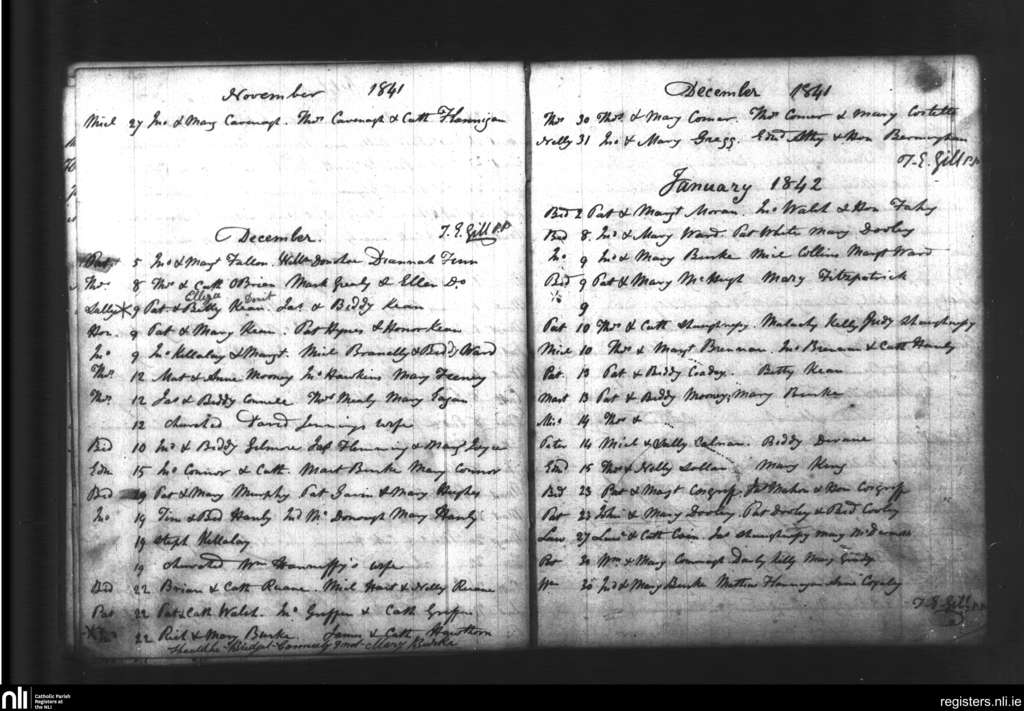 November 1841
Micl 27 Jno & Mary Cavenagh. Thos Cavenagh & Cath Flannigan
T. E. Gill P.P.
December.
Pat 5 Jno & Margt Fallon. Willm Donohoe Diannah Finn
Thos 8 Thos & Cath O'Brian Mark Grealy & Ellen Do
Eliza Dont
Sally 9 Pat & Betty Kean. Jas & Biddy Kean
Hon. 9 Pat & Mary Kean. Pat Hynes & Honor Kean
Jno 9 Jno Killalay & Margt. Micl Branelly & Biddy Ward
Thos 12 Mat & Anne Mooney Jno Hawkins Mary Feeney
Thos 12 Jas & Biddy Thos Mealy Mary Fagan
12 churched David Jennings wife
Bid 10 Jno & Biddy Gilmore Jas Flemming & Mary Joyce
Edm 15 Jno Connor & Cath. Mart Burke Mary Connor
Bid 19 Pat & Mary Murphy Pat Gavin & Mary Hughes
Jno 19 Tim & Bid Hanly Jno McDonough Mary Hanly
19 Steph Killalay
19 churched Wm wife
Bid 22 Brian & Cath Ruane. Micl Hart & Nelly Ruane
Pat 22 Pat & Cath Walsh. Jno Griffin & Cath Griffin
22 Rich & Mary Burke. James & Cath Hawthorn
Should be Bridget not Mary Burke
December 1841
Thos 30 Thos & Mary Comer. Thos Comer & Mary Costello
Nelly 31 Jno & Mary Gragg. Edm & Hon Bermingham
T. E. Gill P.P.
January 1842
Bid 2 Pat & Margt Moran. Jno Walsh & Hon Fahy
Bid 8 Jno & Mary Ward. Pat White Mary Dooley
Jno 9 Jno & Mary Burke Micl Collins Margt Ward
Bid 9 Pat & Mary McHugh Mary Fitzpatrick
9
Pat 10 Thos & Cath Shaughnessy. Malachy Kelly Judy Shaughnessy
Micl 10 Thos & Margt Brennan. Jno Brennan & Cath Hanly
Pat 13 Pat & Biddy Coady. Betty Kean
Mart 13 Pat & Biddy Mooney, Mary Burke
14 Thos &
Peter 14 Micl & Sally Calnan. Biddy Dwane
Edm 15 Thos & Nelly Mary King
Bid 23 Pat & Margt Cosgriff. Mahon & Hon Cosgriff
Pat 23 John & Mary Dooley. Pat Dooley & Bid Cooley
Law 27 Lawe & Cath Cain. Jas Shaughnessy Mary
Pat 30 Wm & Mary Mary
Wm 30 Jno & Mary Burke Mathew Flannigan Anne
T. E. Gill P.P.
nli
Catholic Parish
Registers at
the NLI
registers.nli.ie